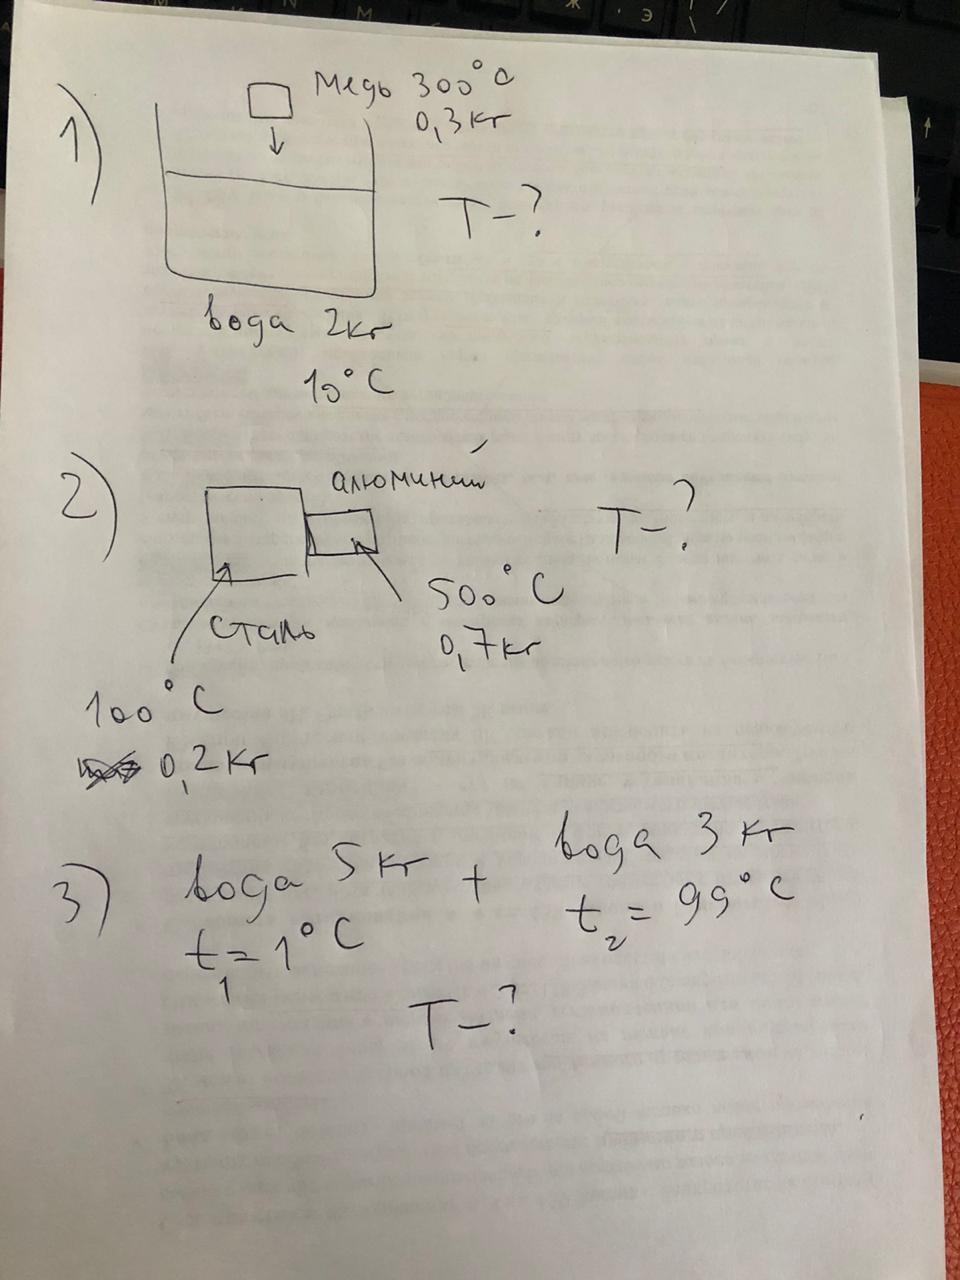 1)
медь 300°C
0,3кг
T-?
вода 2кг
10°C
2)
алюминий
T-?
500°C
0,7кг
сталь
100°C
0,2кг
3)
вода 5кг + вода 3кг
t₁=1°C
t₂=99°C
T-?